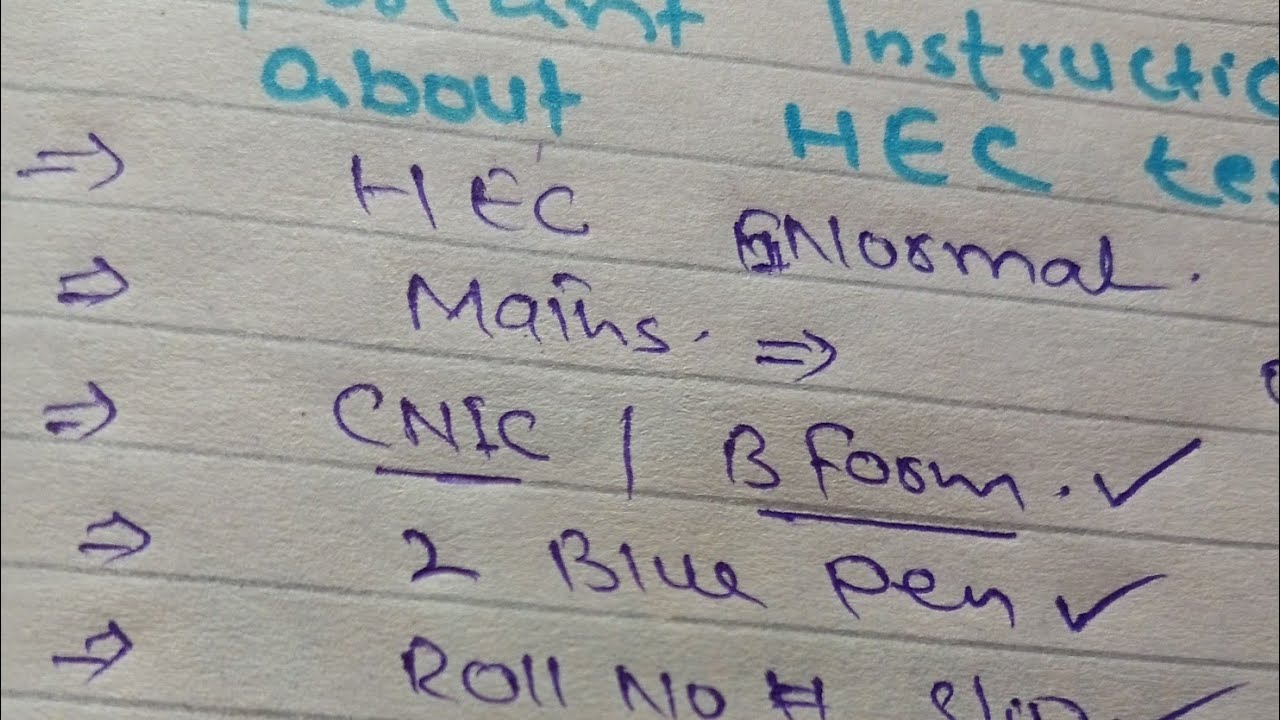 Instructio
about HEC tes
⇒ HEC Normal.
⇒ Mains. ⇒
⇒ CNIC | B Form. ✓
⇒ 2 Blue Pen ✓
⇒ Roll No slip ✓